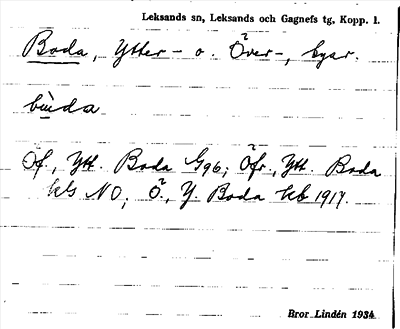 Leksands sn, Leksands och Gagnefs tg, Kopp. l.
Boda, Ytter- o. Över-, byar.
bùda
Öf., Ytt. Boda G96; Öfr., Ytt. Boda
NO; Ö., Y. Boda Kb 1917.
Bror Lindén 1934